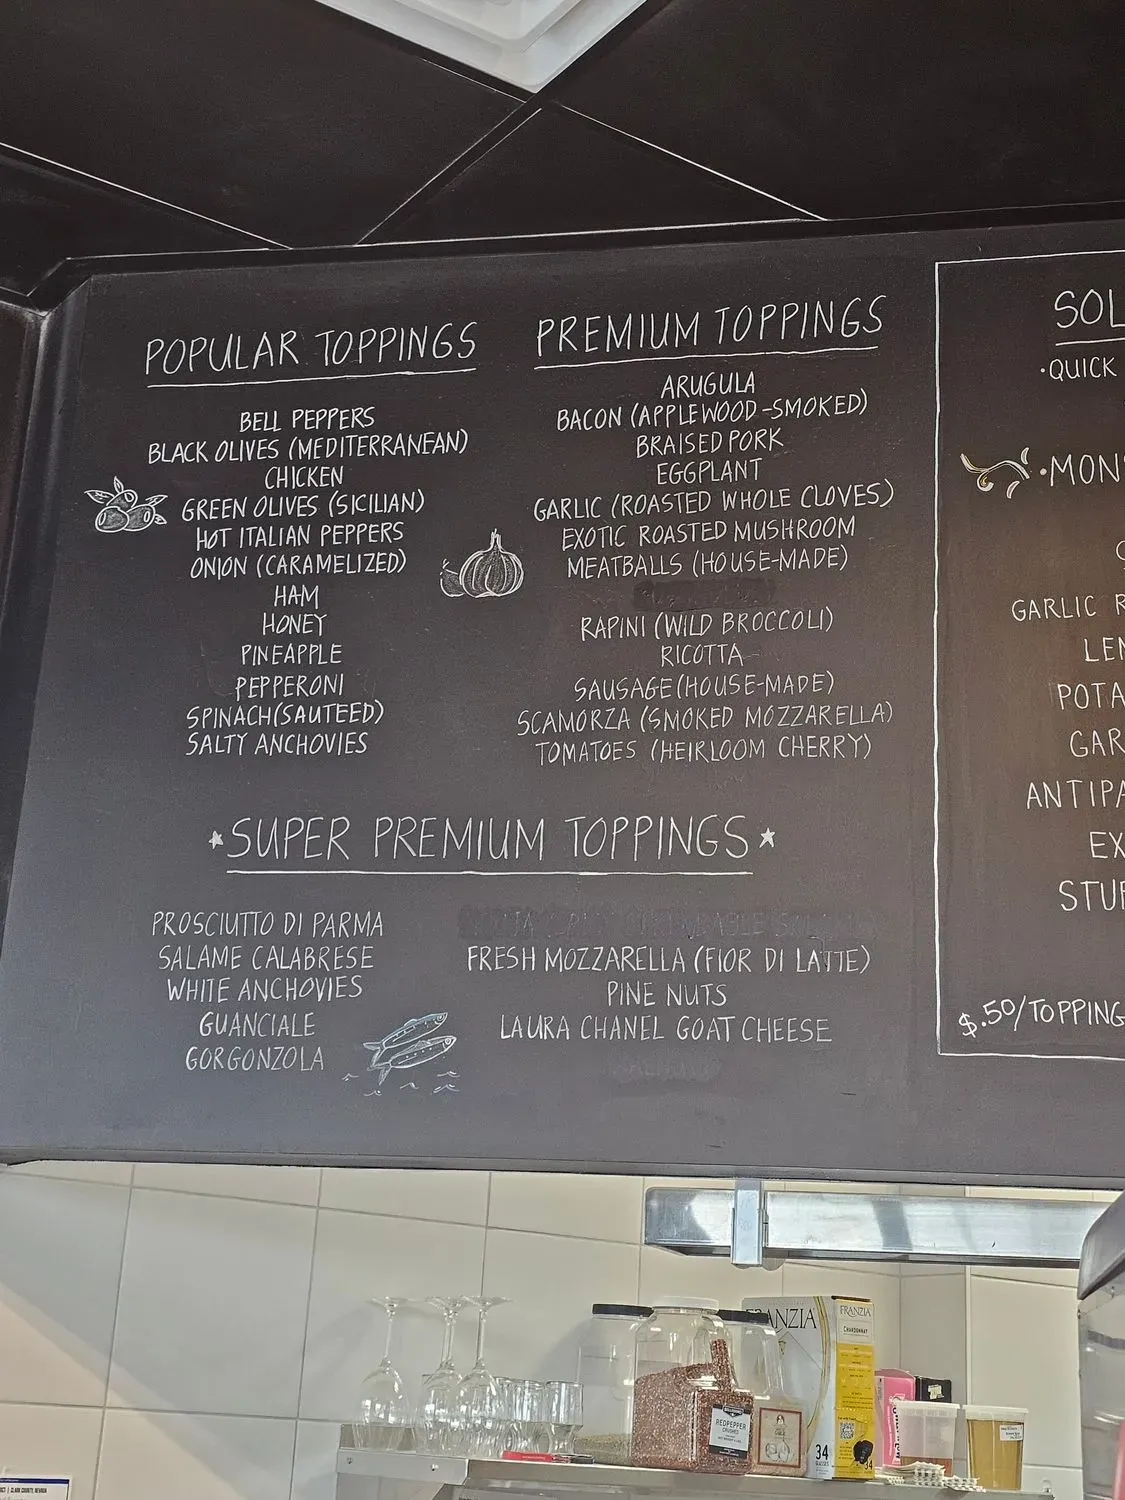 POPULAR TOPPINGS
BELL PEPPERS
BLACK OLIVES (MEDITERRANEAN)
CHICKEN
GREEN OLIVES (SICILIAN)
HOT ITALIAN PEPPERS
ONION (CARAMELIZED)
HAM
HONEY
PINEAPPLE
PEPPERONI
SPINACH(SAUTEED)
SALTY ANCHOVIES
PREMIUM TOPPINGS
ARUGULA
BACON (APPLEWOOD-SMOKED)
BRAISED PORK
EGGPLANT
GARLIC (ROASTED WHOLE CLOVES)
EXOTIC ROASTED MUSHROOM
MEATBALLS (HOUSE-MADE)
RAPINI (WILD BROCCOLI)
RICOTTA
SAUSAGE (HOUSE-MADE)
SCAMORZA (SMOKED MOZZARELLA)
TOMATOES (HEIRLOOM CHERRY)
SUPER PREMIUM TOPPINGS
PROSCIUTTO DI PARMA
SALAME CALABRESE
WHITE ANCHOVIES
GUANCIALE
GORGONZOLA
FRESH MOZZARELLA (FIOR DI LATTE)
PINE NUTS
LAURA CHANEL GOAT CHEESE
SOL
·QUICK
·MON
GARLIC R
LEM
POTA
GAR
ANTIPA
EX
STUF
$.50/TOPPING
FRANZIA
FRANZIA
CHARDONNAY
34
GLASSES
RED PEPPER
CRUSHED